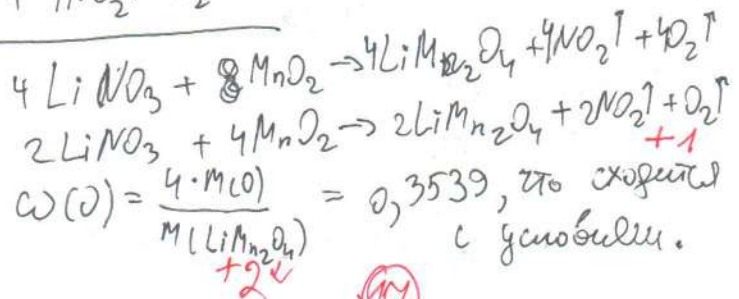 4 LiNO₃ + 8 MnO₂ → 4LiMn₂O₄ + 4NO₂↑ + 4O₂↑
2 LiNO₃ + 4MnO₂ → 2LiMn₂O₄ + 2NO₂↑ + O₂↑
+1
ω(O) = 4·M(O) / M(LiMn₂O₄) = 0,3539, что сходится
с условием.
+2